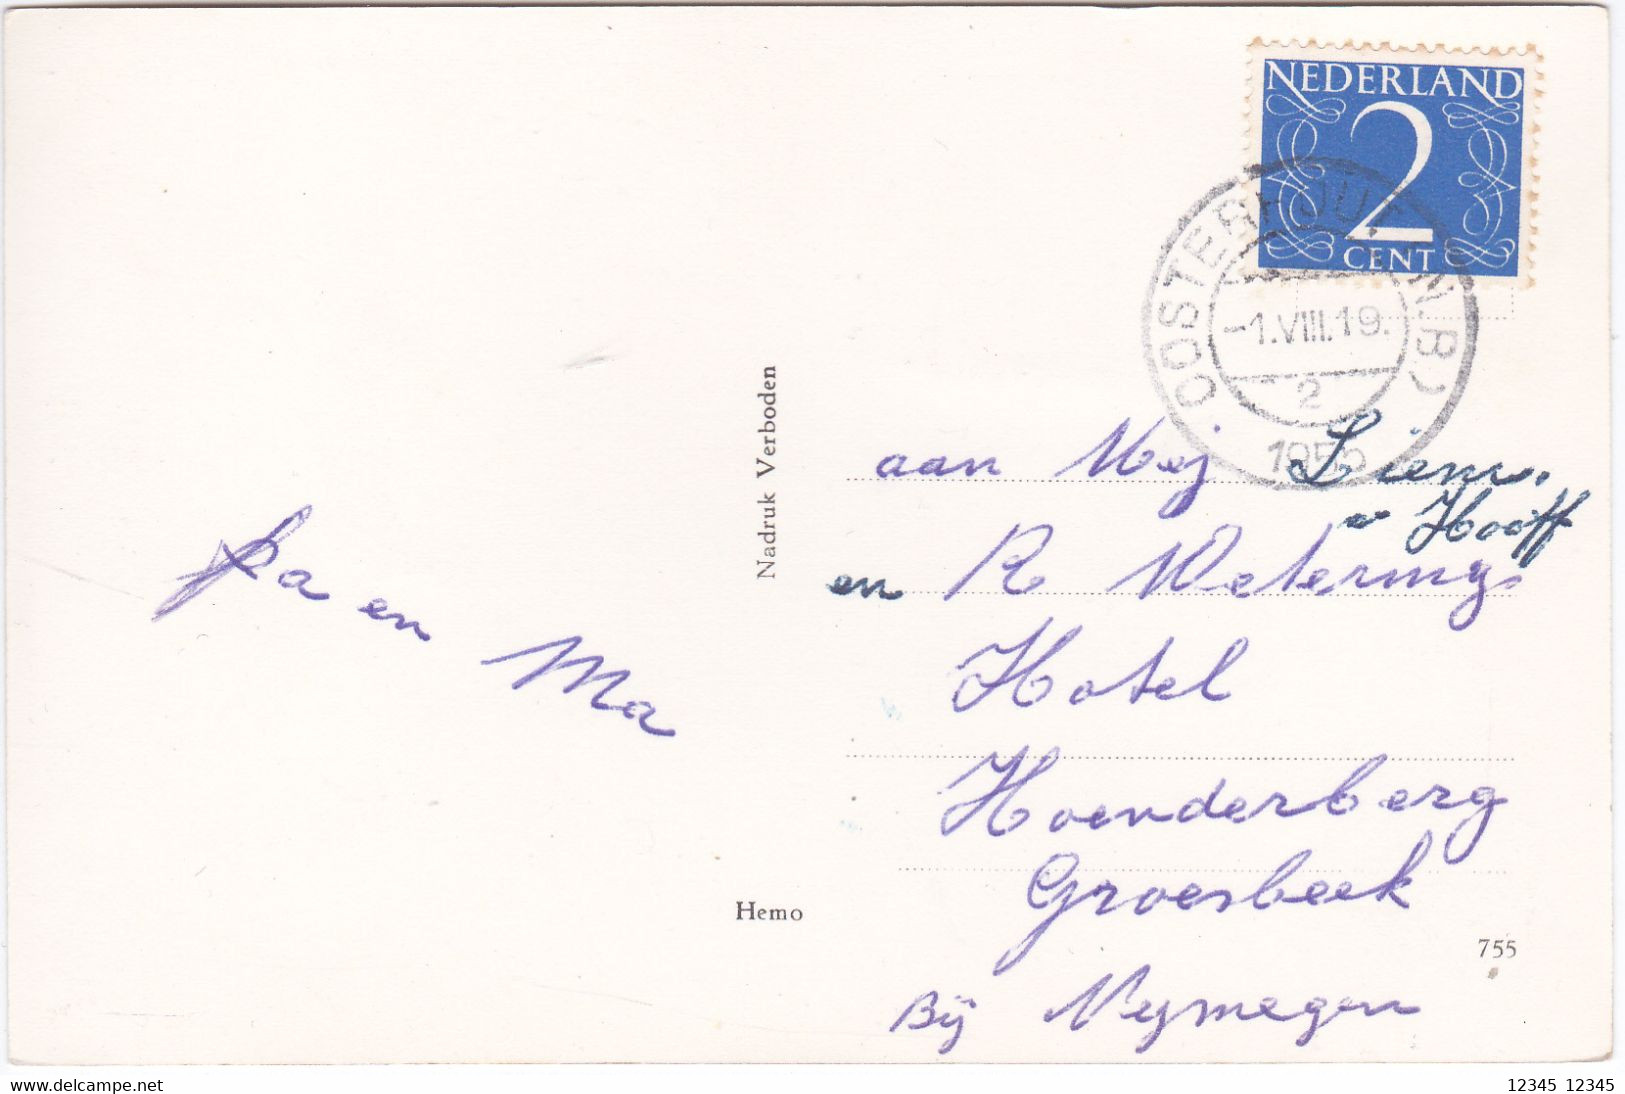 NEDERLAND
2
CENT
OOSTERHOUT (N.B)
-1.VIII.19.
2
1955
Nadruk Verboden
Pa en Ma
aan Mej Liem.
v Hooff
en R Wetering
Hotel
Hoenderberg
Groesbeek
Bij Nijmegen
Hemo
755
www.delcampe.net
12345 12345